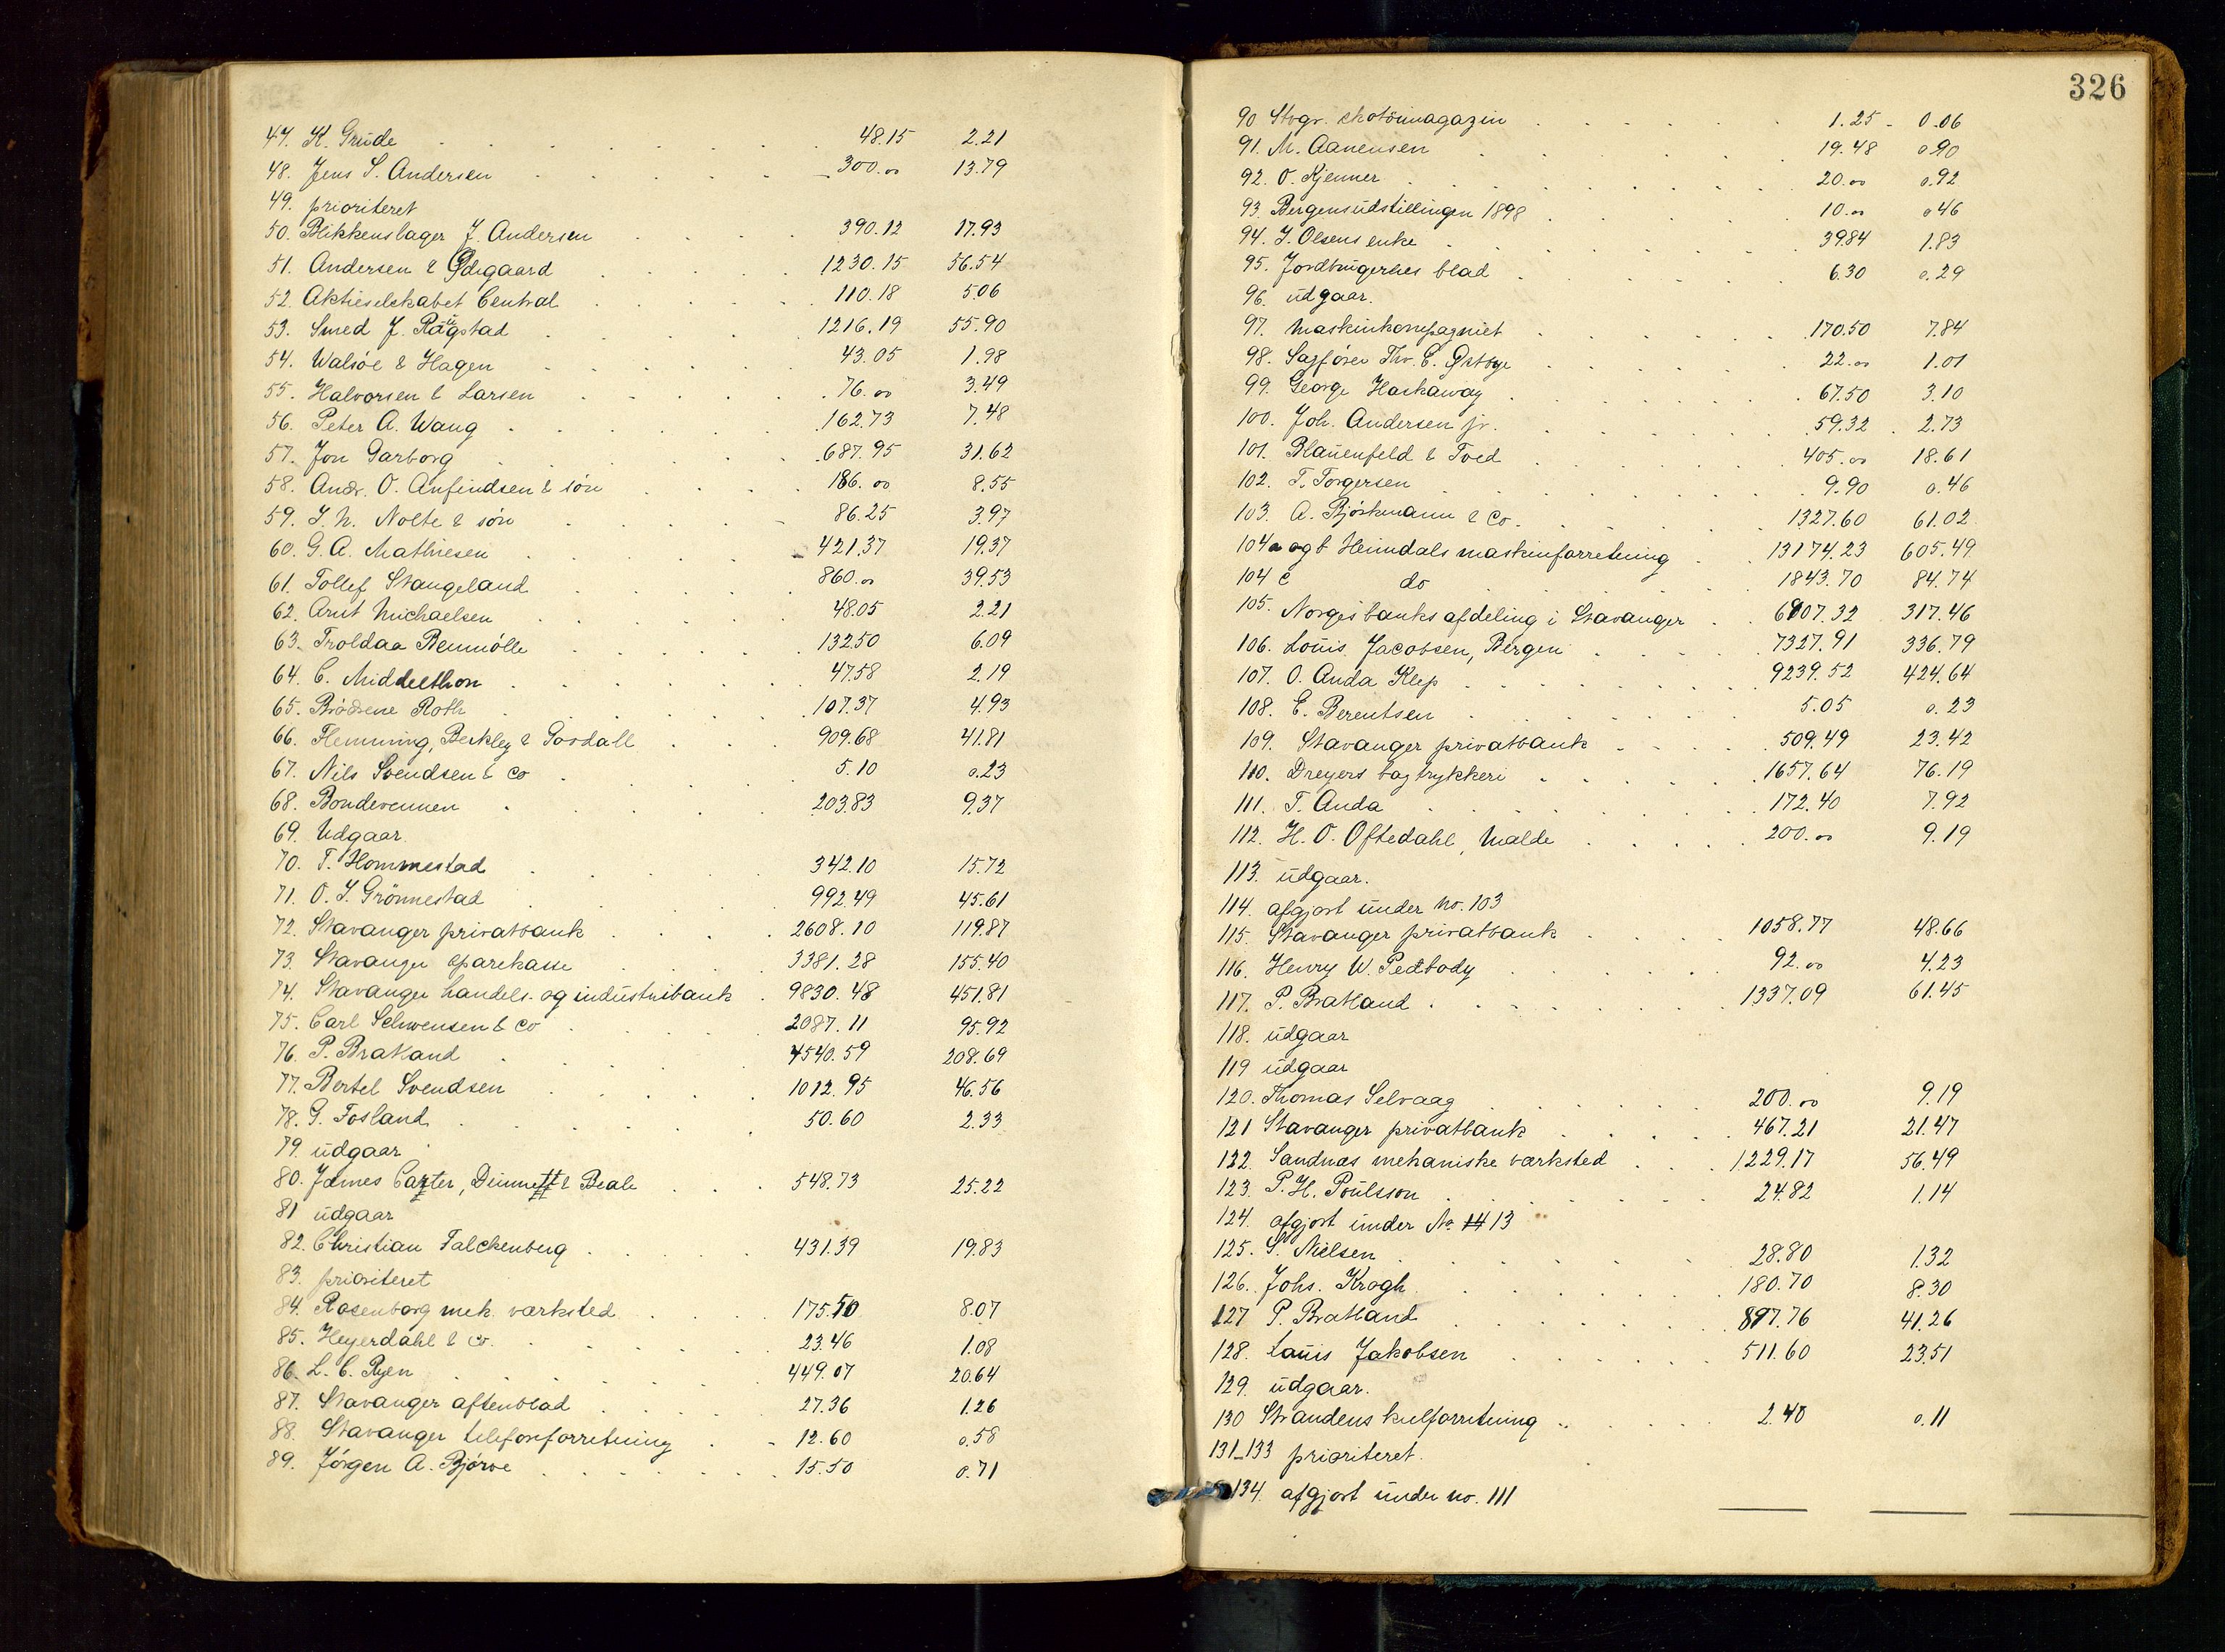 47. K. Grude 48.15 2.21
48. Jens S. Andersen 300.00 13.79
49. prioriteret
50. Blikkenslager J. Andersen 390.12 17.93
51. Andersen & Ødegaard 1230.15 56.54
52. Aktieselskabet Central 110.18 5.06
53. Smed J. Raugstad 1216.19 55.90
54. Walsöe & Hagen 43.05 1.98
55. Halvorsen & Larsen 76.00 3.49
56. Peter A. Wang 162.73 7.48
57. Jon Garborg 687.95 31.62
58. Andr. O. Anfindsen & sön 186.00 8.55
59. J. N. Nolte & sön 86.25 3.97
60. G. A. Mathiesen 421.37 19.37
61. Tollef Stangeland 860.00 39.53
62. Arnt Michaelsen 48.05 2.21
63. Troldaa Benmölle 132.50 6.09
64. C. Middelthon 47.58 2.19
65. Brödrene Roth 107.37 4.93
66. Flemming, Berkley & 909.68 41.81
67. Nils Svendsen & Co 5.10 0.23
68. Bondevennen 203.83 9.37
69. Udgaar
70. T. Hommestad 342.10 15.72
71. O. J. Grönnestad 992.49 45.61
72. Stavanger privatbank 2608.10 119.87
73. Stavanger sparekasse 3381.28 155.40
74. Stavanger handels- og industribank 9830.48 451.81
75. Carl Schwensen & Co 2087.11 95.92
76. P. Bratland 4540.59 208.69
77. Bertel Svendsen 1012.95 46.56
78. G. Fosland 50.60 2.33
79. udgaar
80. James Carter, & Beale 548.73 25.22
81 udgaar
82. Christian Falckenberg 431.39 19.83
83. prioriteret
84. Rosenborg mek. værksted 175.50 8.07
85. Heyerdahl & Co. 23.46 1.08
86. L. C. Ryen 449.07 20.64
87. Stavanger aftenblad 27.36 1.26
88. Stavanger telefonforretning 12.60 0.58
89. Jörgen A. Björve 15.50 0.71
326
90 Stvgr. skotöimagazin 1.25 0.06
91. M. Aanensen 19.48 0.90
92. O. Kjenner 20.00 0.92
93. Bergensudstillingen 1898 10.00 0.46
94. J. Olsens enke 39.84 1.83
95. Jordbrugernes blad 6.30 0.29
96. udgaar.
97. Maskinkompagniet 170.50 7.84
98. Sagförer Thv. C. Østbye 22.00 1.01
99. George Haskaway 67.50 3.10
100. Joh. Andersen jr. 59.32 2.73
101. Blauenfeld & Tved 405.00 18.61
102. T. Torgersen 9.90 0.46
103. A. Björkmann & Co. 1327.60 61.02
104a og b Heimdals maskinforretning 13174.23 605.49
104 c do 1843.70 84.74
105. Norges banks afdeling i Stavanger 6907.32 317.46
106. Louis Jacobsen, Bergen 7327.91 336.79
107. O. Anda Klep 9239.52 424.64
108. E. Berentsen 5.05 0.23
109. Stavanger privatbank 509.49 23.42
110. Dreyers bogtrykkeri 1657.64 76.19
111. T. Anda 172.40 7.92
112. H. O. Oftedahl, Malde 200.00 9.19
113. udgaar.
114. afgjort under No. 103
115. Stavanger privatbank 1058.77 48.66
116. Henry W. Peabody 92.00 4.23
117. P. Bratland 1337.09 61.45
118. udgaar
119 udgaar
120. Thomas Selvaag 200.00 9.19
121 Stavanger privatbank 467.21 21.47
122. Sandnæs mekaniske værksted 1229.17 56.49
123. P. H. Poulsson 24.82 1.14
124. afgjort under No. 13
125. S. Nielsen 28.80 1.32
126. Johs. Krogh 180.70 8.30
127 P. Bratland 897.76 41.26
128. Louis Jakobsen 511.60 23.51
129. udgaar.
130 Strandens kulforretning 2.40 0.11
131-133 prioriteret.
134. afgjort under no. 111